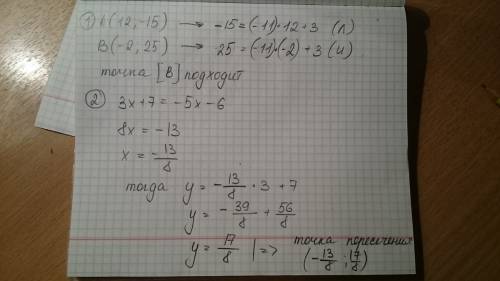 ① A(12,-15) → -15=(-11)·12+3 (Л)
B(-2,25) → 25=(-11)·(-2)+3 (И)
точка [B] подходит
② 3x+7=-5x-6
8x=-13
x=-13/8
тогда y=-13/8·3+7
y=-39/8+56/8
y=17/8 |=> точка пересечения
(-13/8;17/8)